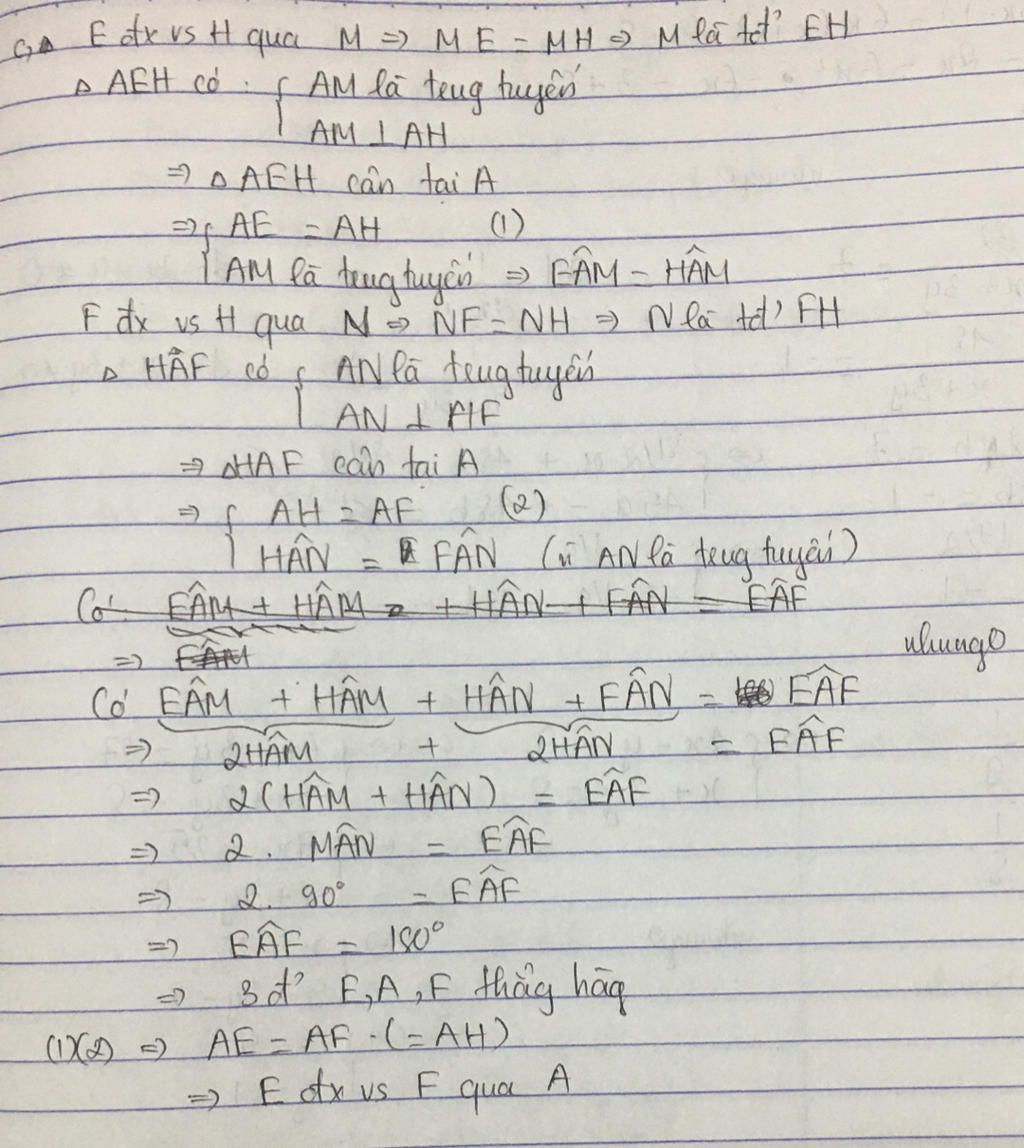 c, Δ E đx vs H qua M => ME = MH => M là tđ' EH
Δ AEH có : { AM là trung tuyến
AM ⊥ AH
=> Δ AEH cân tại A
=> { AE = AH (1)
AM là trung tuyến => EÂM = HÂM
F đx vs H qua N => NF = NH => N là tđ' FH
Δ HÂF có { AN là trung tuyến
AN ⊥ HF
=> ΔHAF cân tại A
=> { AH = AF (2)
HÂN = FÂN (vì AN là trung tuyến)
Có: EÂM + HÂM = + HÂN + FÂN = EÂF
=> EÂM
nhung
Có EÂM + HÂM + HÂN + FÂN = EÂF
=> 2HÂM + 2HÂN = EÂF
=> 2(HÂM + HÂN) = EÂF
=> 2. MÂN = EÂF
=> 2. 90° = EÂF
=> EÂF = 180°
=> 3 đ' E, A, F thẳg hàg
(1)(2) => AE = AF (= AH)
=> E đx vs F qua A